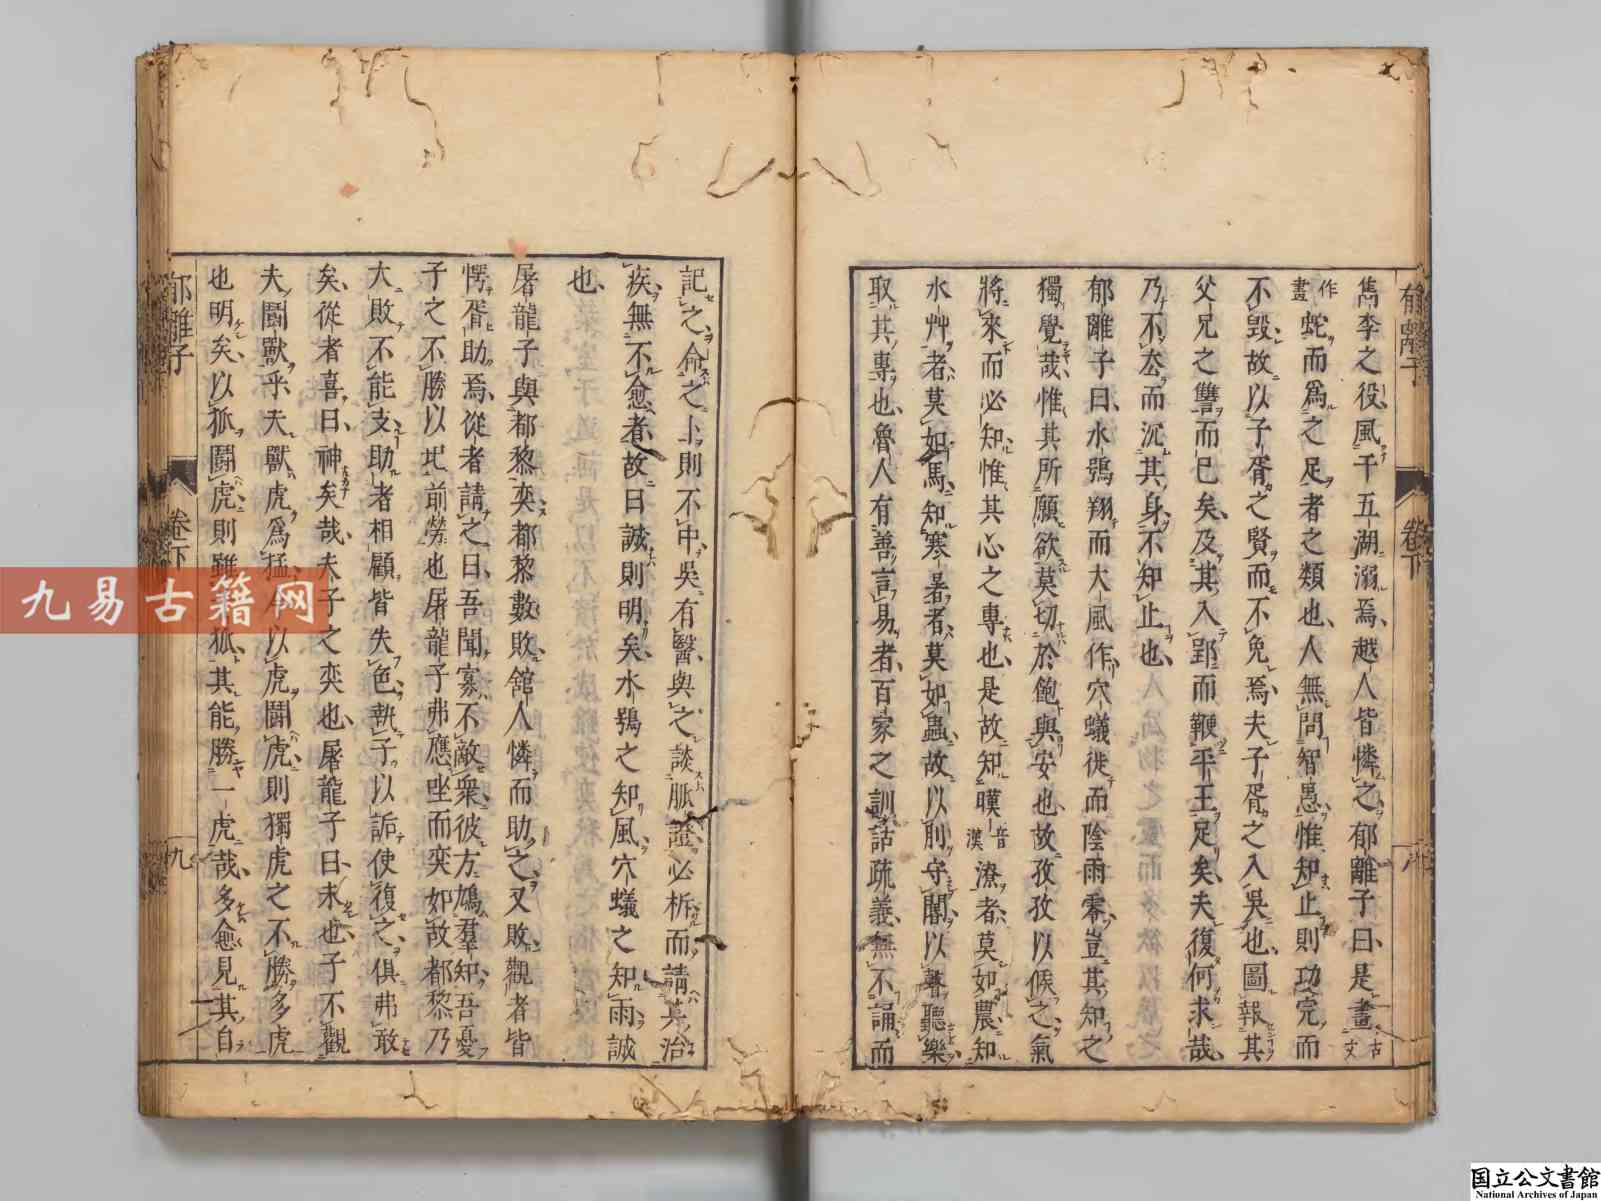 雋李之役風于五湖溺焉越人皆憐之郁離子曰是畫古文
作畫蛇而爲之足者之類也人無問智愚惟知止則功完而
不毀故以子胥之賢而不免焉夫子胥之入吳也圖報其
父兄之讐而巳矣及其入郢而鞭平王足矣夫復何求哉
乃不去而沉其身不知止也
郁離子曰水鴞翔而大風作穴蟻徙而陰雨零豈其知之
獨覺哉惟其所願欲莫切於飽與安也故孜孜以候之氣
將來而必知惟其心之專也是故知暵音漢潦者莫如農知
水艸者莫如馬知寒暑者莫如蟲故以刖守閽以瞽聽樂
取其專也魯人有善言易者百家之訓詁疏義無不誦而
記之命之卜則不中吳有醫與之談脈證必析而請其治
疾無不愈者故曰誠則明矣水鴞之知風穴蟻之知雨誠
也
屠龍子與都黎奕都黎數敗舘人憐而助之又敗觀者皆
愕胥助焉從者請之曰吾聞寡不敵衆彼方鳩羣知吾憂
子之不勝以圯前勞也屠龍子弗應坐而奕如故都黎乃
大敗不能支助者相顧皆失色執子以詬使復之俱弗敢
矣從者喜曰神矣哉夫子之奕也屠龍子曰未也子不觀
夫鬪獸乎夫獸虎爲猛今以虎鬪虎則獨虎之不勝多虎
也明矣以狐鬪虎則雖狐其能勝一虎哉多愈見其自
郁離子
卷下
九
郁離子
卷下
九易古籍网
国立公文書館
National Archives of Japan